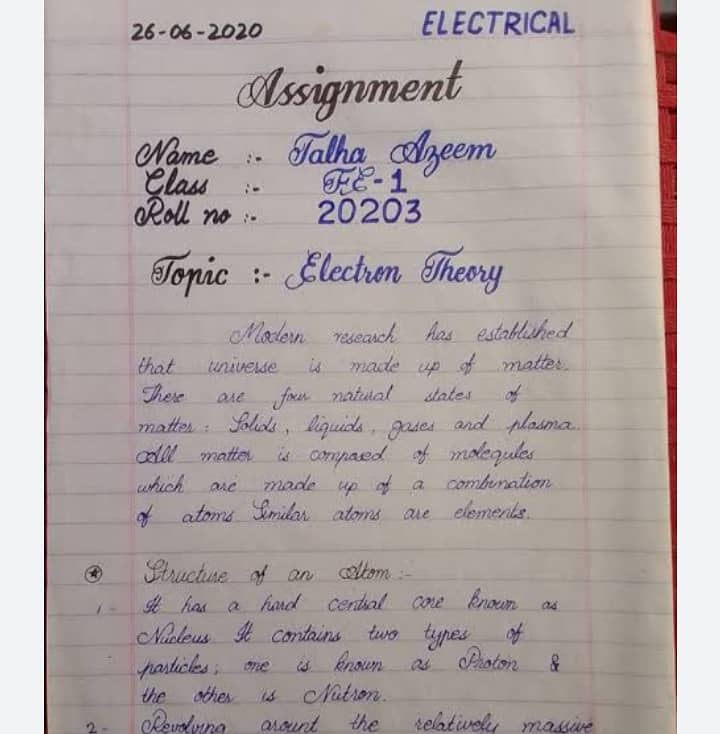 26-06-2020 ELECTRICAL
Assignment
Name :- Talha Azeem
Class :- FE-1
Roll no :- 20203
Topic :- Electron Theory
Modern research has established
that universe is made up of matter.
There are four natural states of
matter : Solids, liquids, gases and plasma.
All matter is compased of molequles
which are made up of a combination
of atoms Similar atoms are elements.
Structure of an Atom :-
1- It has a hard central core known as
Nucleus It contains two types of
particles; one is known as Proton &
the other is Nutron.
2- Revolving arount the relatively massive